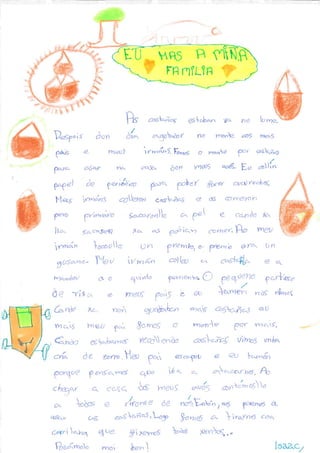 EU MAS A MIÑA
FAMILIA
As castañas estaban xa no lume
Despois dun día no monte cos meus
pais e meus irmáns. Fomos o monte por castañas
para asar na casa dos meus avós. Eu collín
papel de periódico para poder facer
Meus irmáns colleron castañas e as comeron
pero primeiro sacaronlle a pel e cando xa
lla sacaron xa as podían comer. Ao meu
irmán tocoulle un premio, o premio era un
gusano. Meu irmán colleu a castaña e a
O pequeno partiuse
de risa e meus pais e eu tamén nos rimos
Cando xa non quedaban máis castañas eu
mais meu pai fomos o monte por mais.
Cando estabamos recollendo castañas vimos unha
cría de zorro. Meu pai escapou e eu tamén
porque pensamos que iba a atacarnos. Ao
chegar a casa dos meus avós contámosllo
a todos e de nós. Entón, nos puxemos a
asar as castañas. Logo fomos a tirarnos con
que fixemos todos xuntos...
Pasámolo moi ben!
Isaac